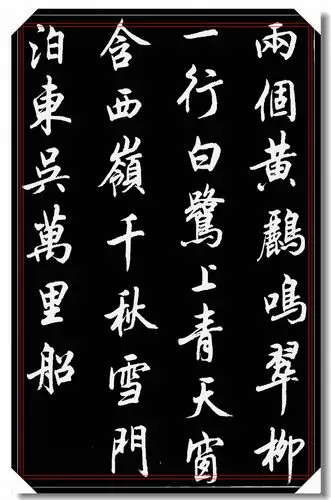 兩個黃鸝鳴翠柳
一行白鷺上青天窗
含西嶺千秋雪門
泊東吳萬里船